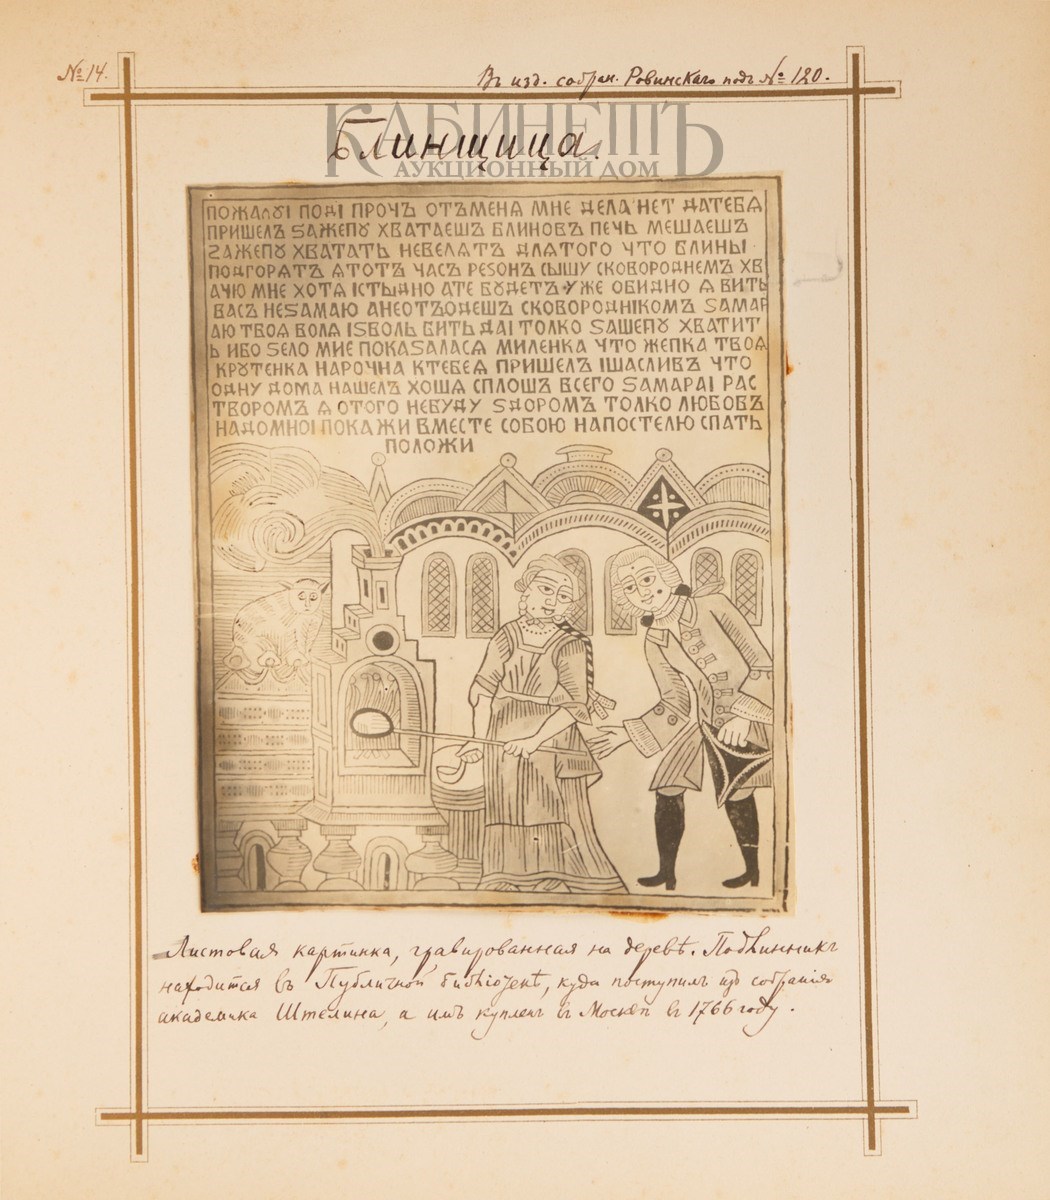 № 14.
Въ изд. собран. Ровинскаго подъ № 120.
КАБИНЕТЪ
АУКЦИОННЫЙ ДОМ
Блинщица.
ПОЖАЛꙋІ ПОДІ ПРОЧЪ ОТЪМЕНЯ МНЕ ДЕЛА НЕТ ДАТЕБЯ
ПРИШЕЛЪ ЅАЖЕПꙋ ХВАТАЕШЪ БЛИНОВЪ ПЕЧЬ МЕШАЕШЪ
ЅАЖЕПꙋ ХВАТАТЬ НЕВЕЛЯТЪ ДЛЯТОГО ЧТО БЛИНЫ
ПОДГОРЯТЪ ЯТОТЪ ЧАСЪ РЕЅОНЪ СЫШУ СКОВОРОДНЕМЪ ХВ
АЧЮ МНЕ ХОТЯ ІСТЫДНО АТЕ БꙋДЕТЪ УЖЕ ОБИДНО Я БИТЬ
ВАСЪ НЕЅАМАЮ АНЕОТЪОДЕШЪ СКОВОРОДНІКОМЪ ЅАМАР
АЮ ТВОЯ ВОЛЯ ІЅВОЛЬ БИТЬ ДАІ ТОЛКО ЅАШЕПꙋ ХВАТИТ
Ь ИБО ЅЕЛО МИЕ ПОКАЅАЛАСЯ МИЛЕНКА ЧТО ЖЕПКА ТВОЯ
КРꙋТЕНКА НАРОЧНА КТЕБЕЯ ПРИШЕЛЪ ІЩАСЛИВЪ ЧТО
ОДНУ ДОМА НАШЕЛЪ ХОШЯ СПЛОШЪ ВСЕГО ЅАМАРАІ РАС
ТВОРОМЪ Я ОТОГО НЕБУДУ ЅДОРОМЪ ТОЛКО ЛЮБОВЪ
НАДОМНОІ ПОКАЖИ ВМЕСТЕ СОБОЮ НАПОСТЕЛЮ СПАТЬ
ПОЛОЖИ
Листовая картинка, гравированная на деревѣ. Подлинникъ
находится въ Публичной библіотекѣ, куда поступилъ изъ собранія
академика Штелина, а имъ купленъ въ Москвѣ въ 1766 году.